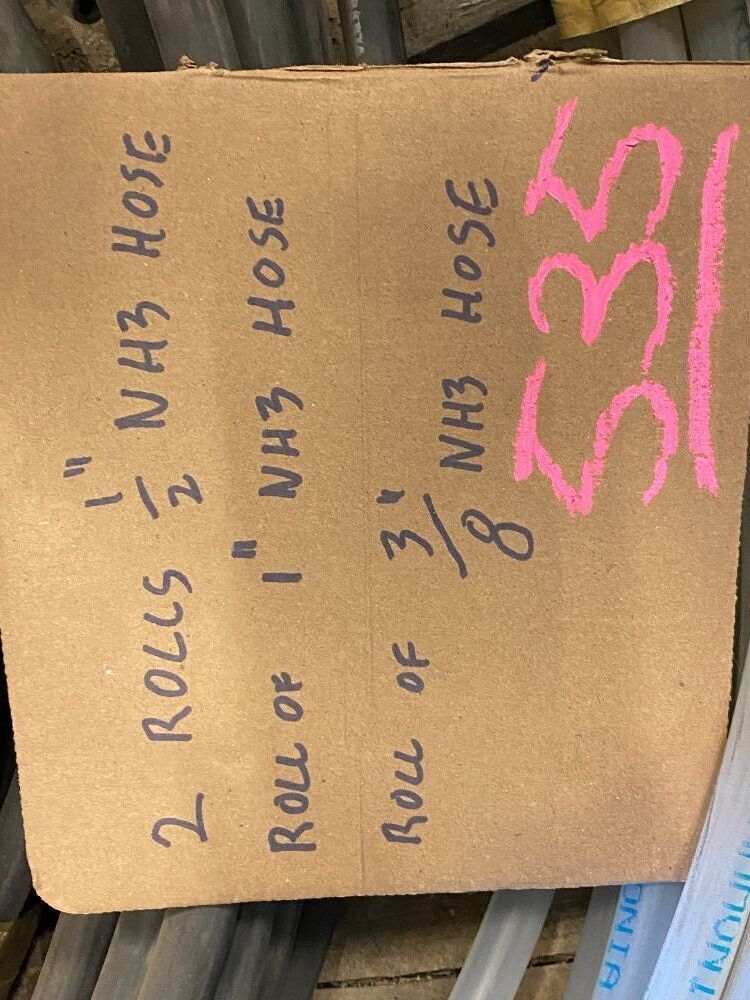 2 ROLLS 1/2" NH3 HOSE
ROLL OF 1" NH3 HOSE
ROLL OF 3/8" NH3 HOSE
535